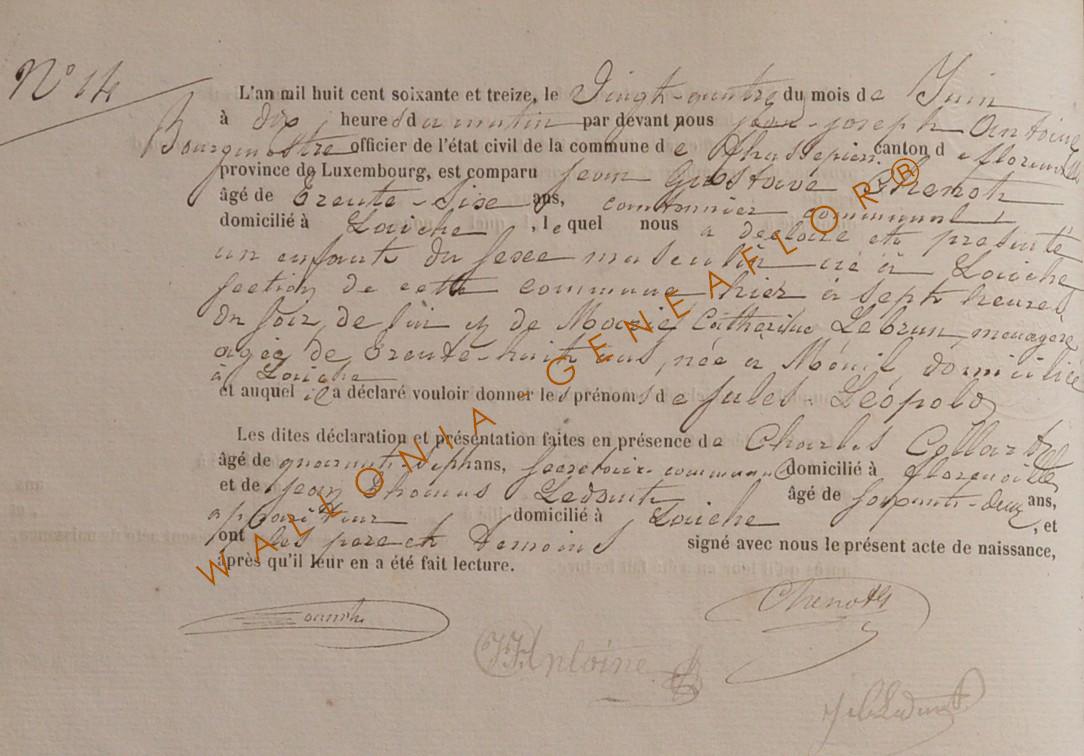 N° 14
L'an mil huit cent soixante et treize, le Vingt-quatre du mois de Juin
à dix heures du matin par devant nous Jean-Joseph Antoine
Bourgmestre officier de l'état civil de la commune de Chassepierre canton de Florenville
province de Luxembourg, est comparu Jean Gustave Chenot
âgé de Trente-Six ans, cantonnier communal
domicilié à Laiche, lequel nous a déclaré et présenté
un enfant du sexe masculin né à Laiche
section de cette commune hier à sept heures
du soir, de lui et de Marie Catherine Lebrun, menagère
agée de Trente-huit ans, née à Ménil, domiciliée
à Laiche
et auquel il a déclaré vouloir donner les prénoms de Jules-Léopold
Les dites déclaration et présentation faites en présence de Charles Collard
âgé de quarante-sept ans, secretaire communal domicilié à Florenville
et de Jean Thomas Ledant âgé de soixante-deux ans,
appariteur domicilié à Laiche, et
ont les pere et temoins signé avec nous le présent acte de naissance,
après qu'il leur en a été fait lecture.
Chenot
JJ Antoine
WALLONIA - GENEAFLOR®